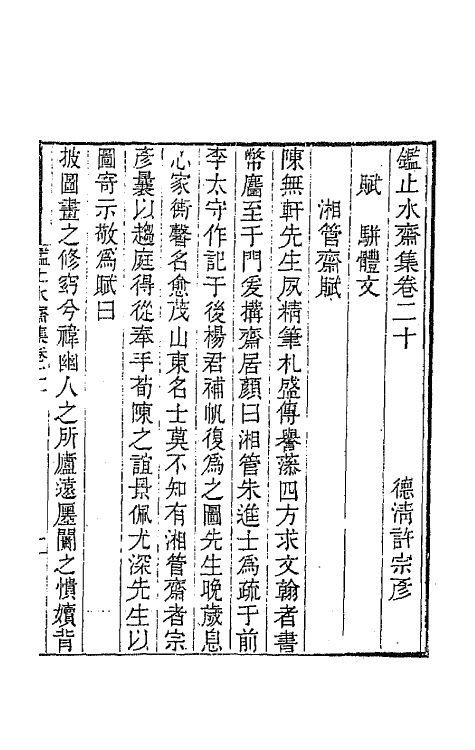 鑑止水齋集卷二十
德淸許宗彥
賦　駢體文
湘管齋賦
陳無軒先生夙精筆札盛傳譽藻四方求文翰者書
幣麕至于門爰搆齋居顏曰湘管朱進士爲疏于前
李太守作記于後楊君補帆復爲之圖先生晚歲息
心家衖馨名愈茂山東名士莫不知有湘管齋者宗
彥曩以趨庭得從奉手荀陳之誼景佩尤深先生以
圖寄示敬爲賦曰
披圖畫之修窈兮褘幽人之所廬遠廛闠之憒嬻背
鑑止水齋集卷二十
一